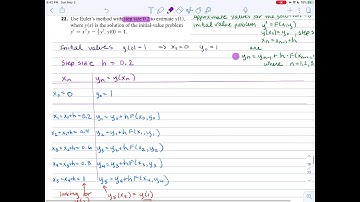 8:42 PM Sun Sep 3
22. Use Euler's method with step size 0.2 to estimate y(1),
where y(x) is the solution of the initial-value problem
y' = x²y − ½y², y(0) = 1.
Approximate values for the
initial value problem y' = F(x,y)
y(x₀) = y₀, step s
xₙ = xₙ₋₁ + h
are
yₙ = yₙ₋₁ + h·F(xₙ₋₁
where n = 1, 2, 3
Initial values y(0) = 1 → x₀ = 0 y₀ = 1
Step size h = 0.2
xₙ yₙ = y(xₙ)
x₀ = 0 y₀ = 1
x₁ = x₀ + h = 0.2 y₁ = y₀ + h F(x₀, y₀)
x₂ = x₁ + h = 0.4 y₂ = y₁ + h F(x₁, y₁)
x₃ = x₂ + h = 0.6 y₃ = y₂ + h F(x₂, y₂)
x₄ = x₃ + h = 0.8 y₄ = y₃ + h F(x₃, y₃)
x₅ = x₄ + h = 1 y₅ = y₄ + h F(x₄, y₄)
looking for y₅(x₅) = y(1)
y(1)